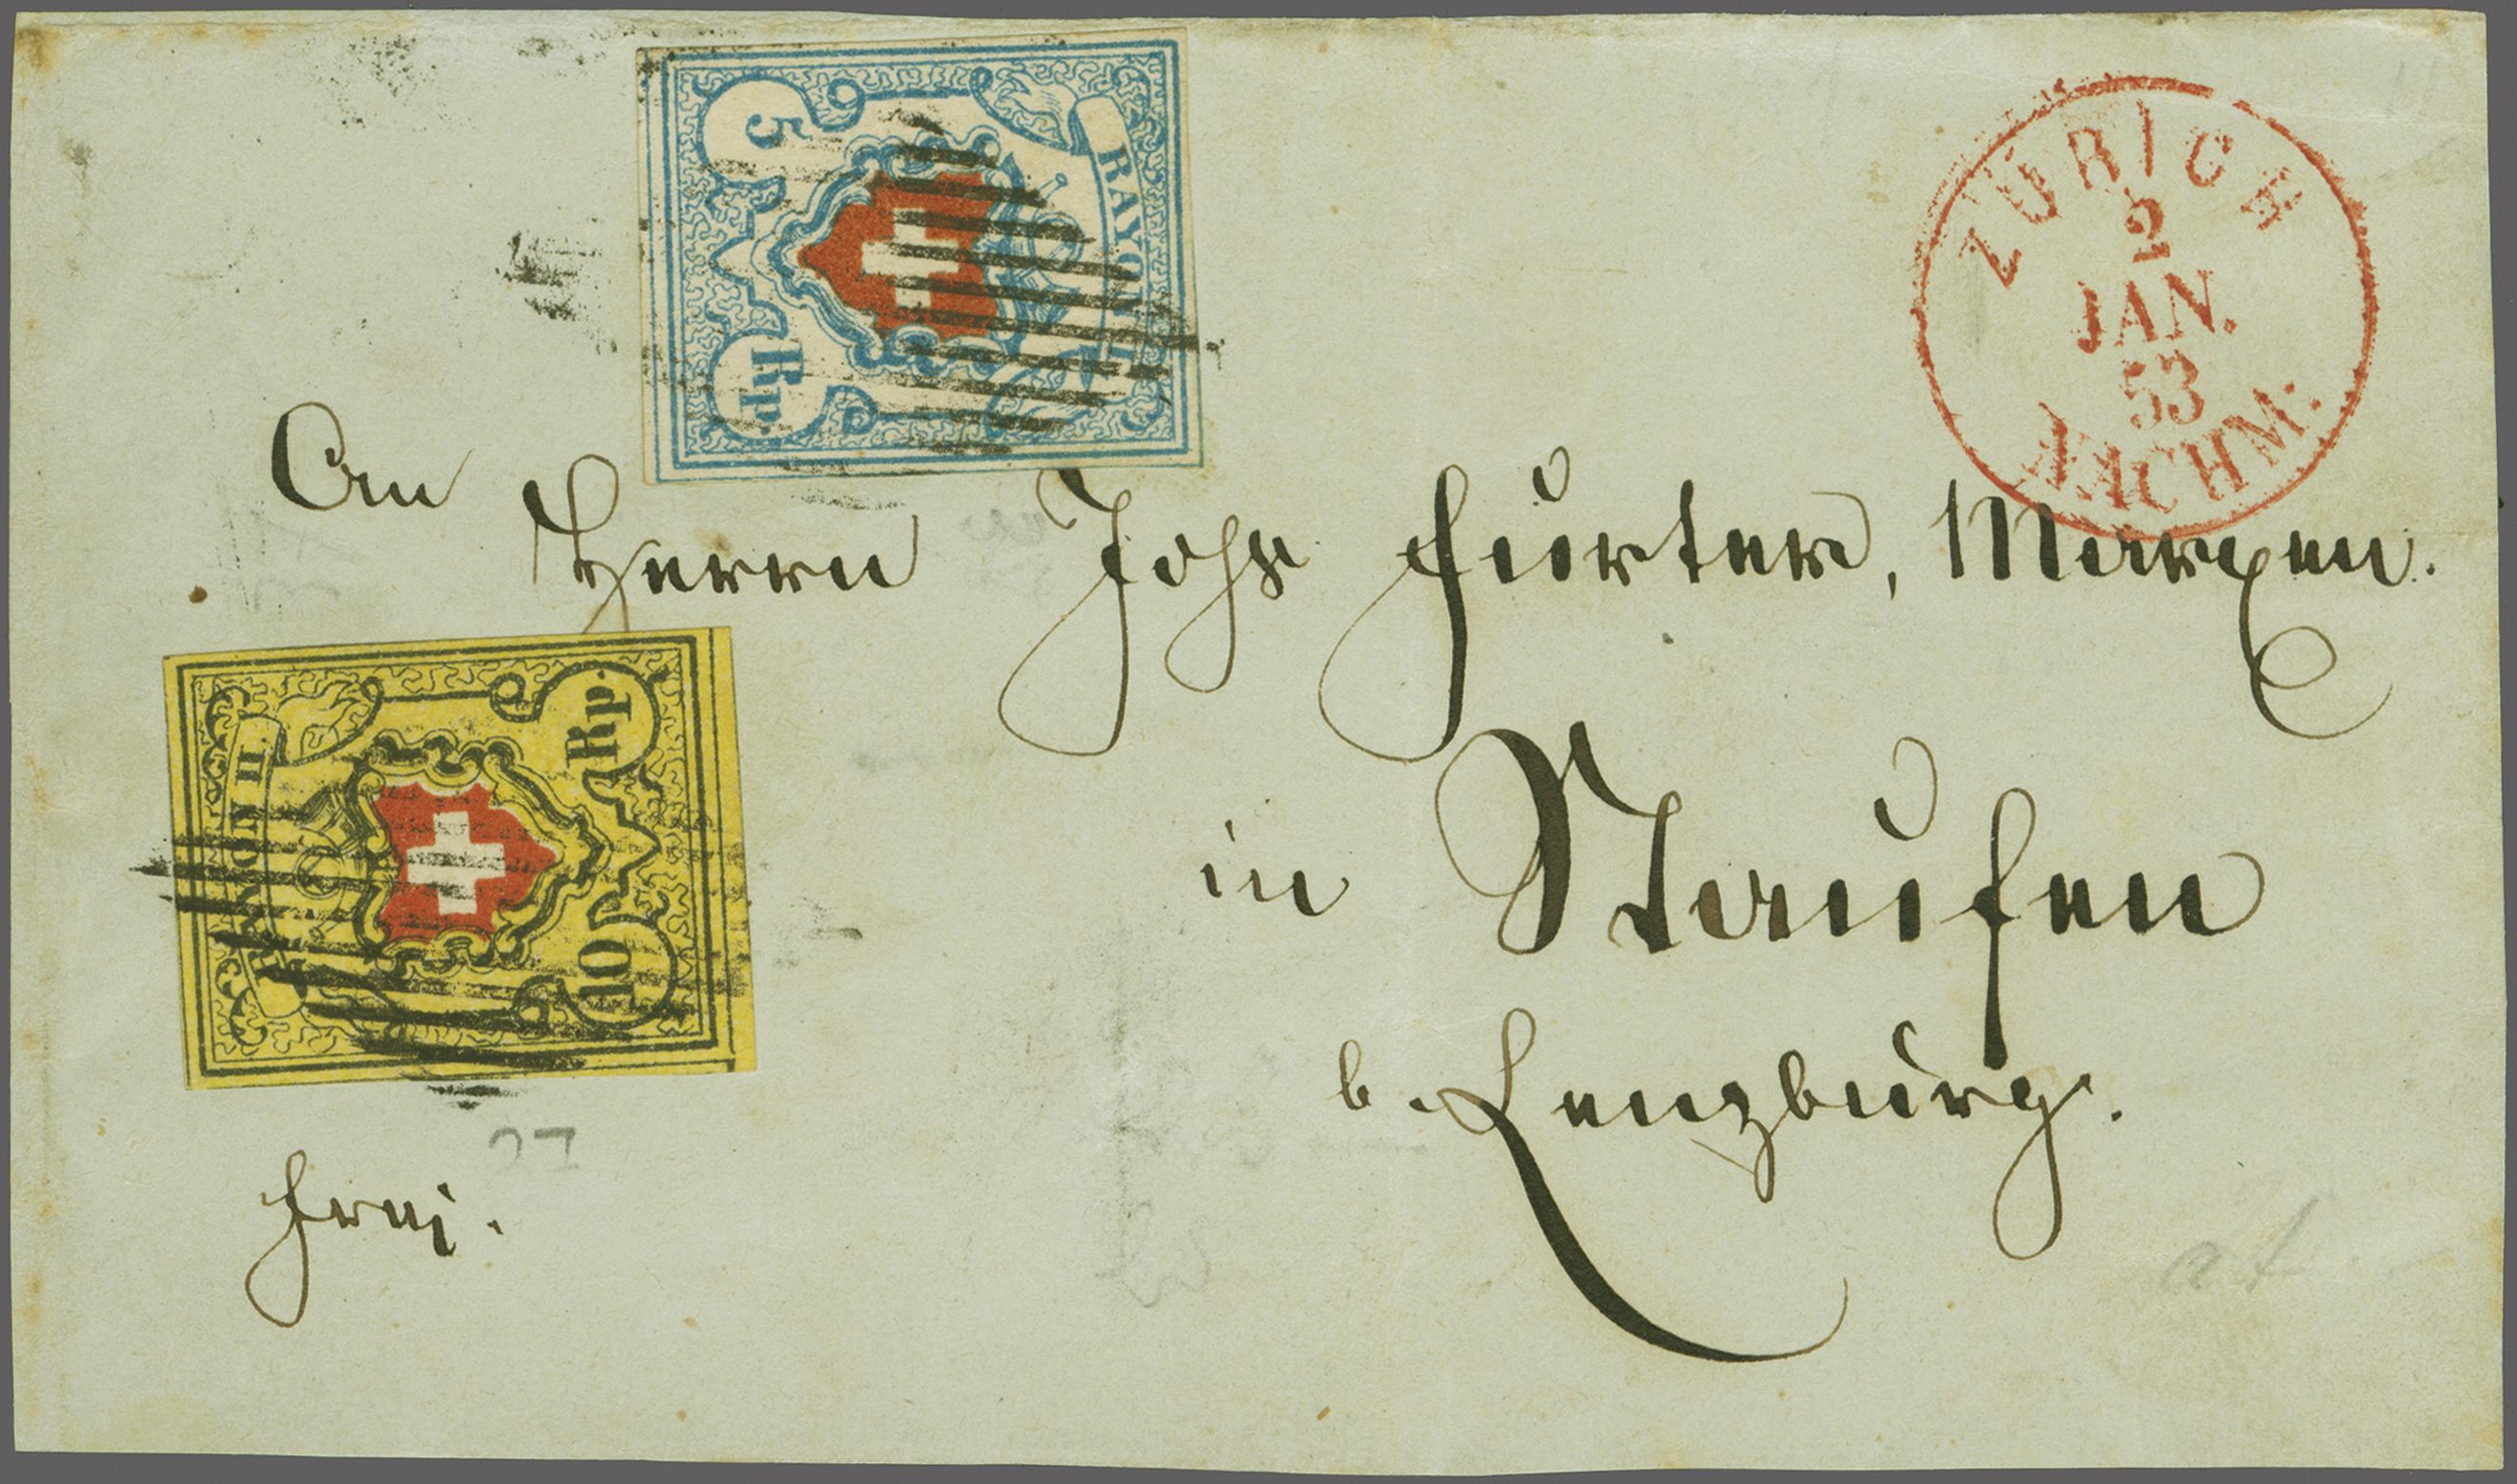 5 Rp.
RAYON I.
ZÜRICH
2
JAN.
53
NACHM:
An
Herrn Johs Furter, Marxen.
RAYON II
10 Rp.
in Staufen
b. Lenzburg.
frei.